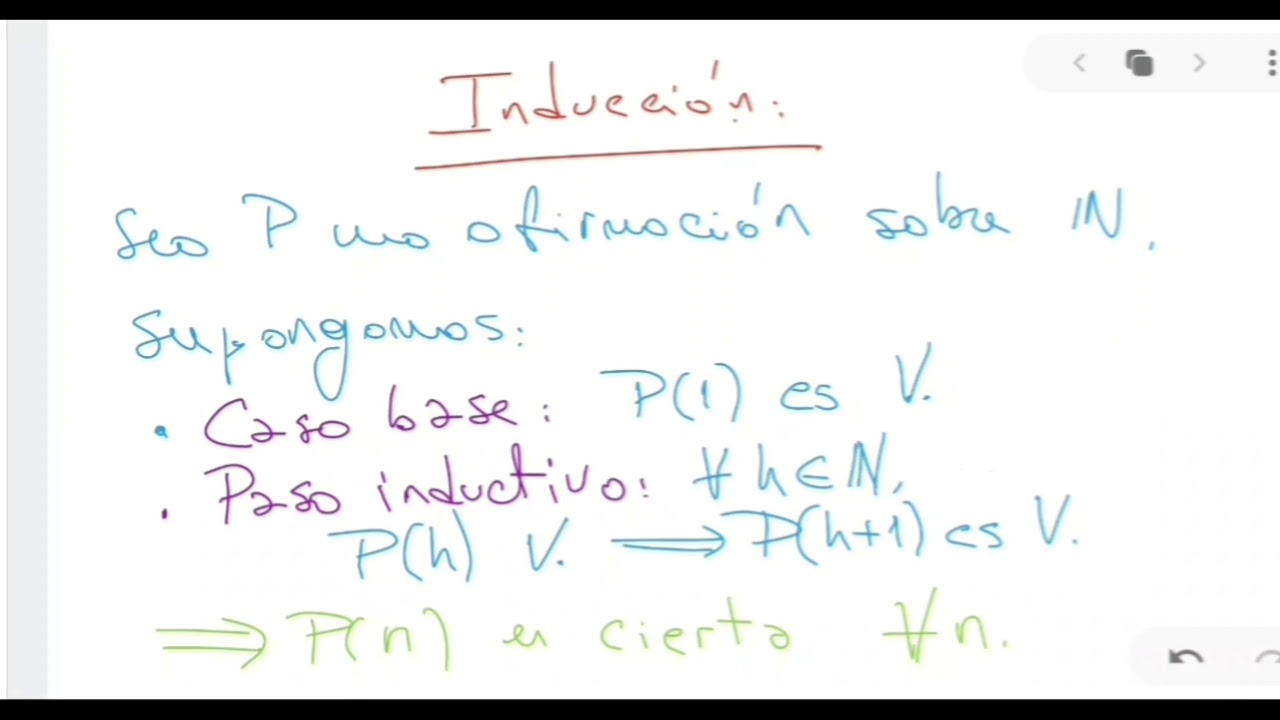 Inducción:
Sea P una afirmación sobre ℕ.
Supongamos:
• Caso base: P(1) es V.
• Paso inductivo: ∀ h ∈ ℕ,
P(h) V. ⟹ P(h+1) es V.
⟹ P(n) es cierta ∀n.